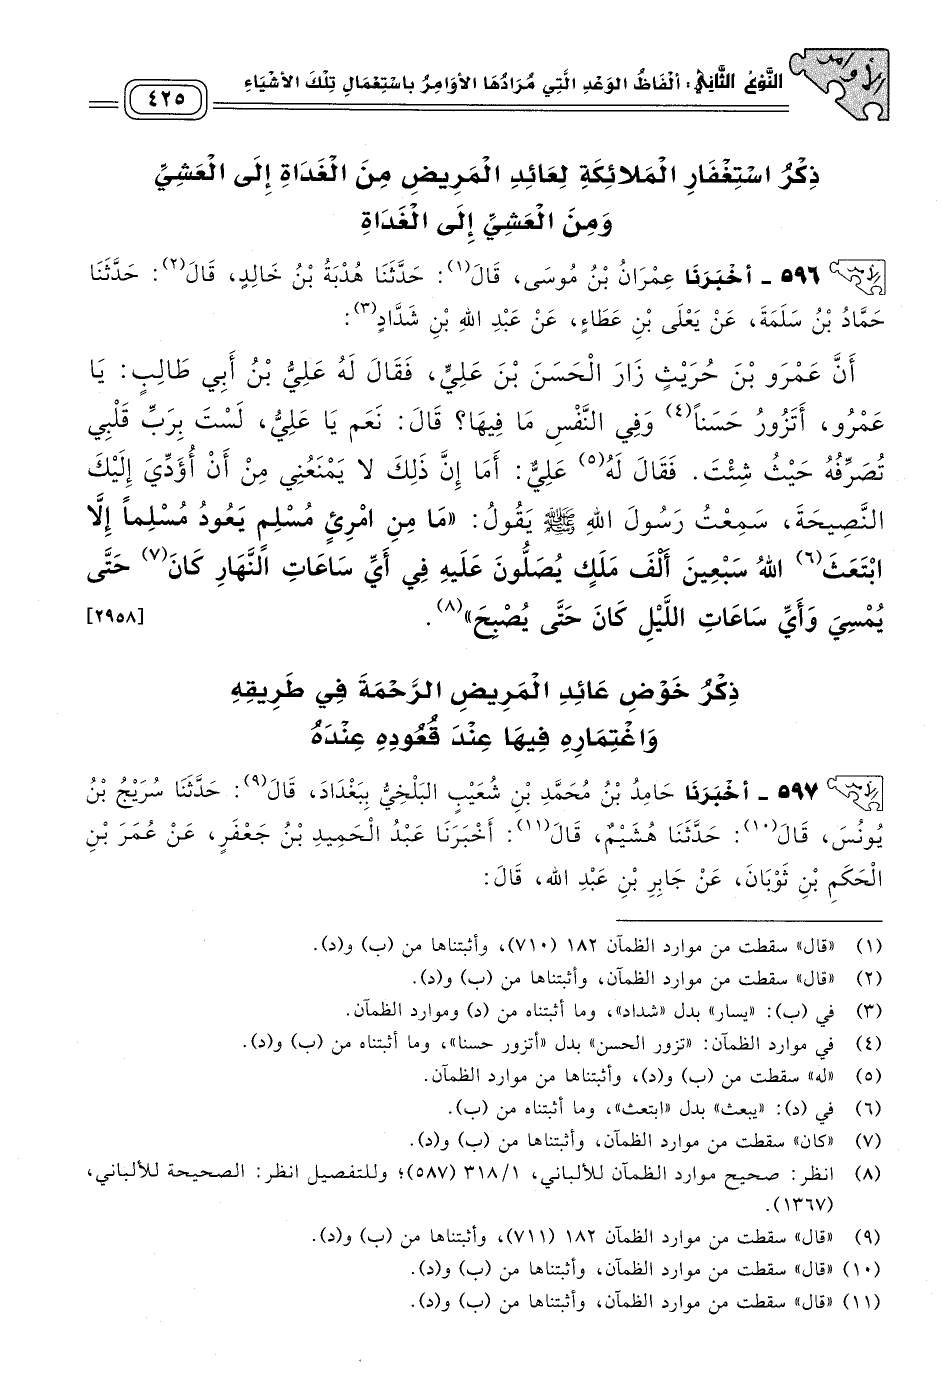 الأوامر
النَّوْعُ الثَّانِي: أَلْفَاظُ الوَعْدِ الَّتِي مُرَادُهَا الأَوَامِرُ بِاسْتِعْمَالِ تِلْكَ الأَشْيَاءِ
٤٢٥
ذِكْرُ اسْتِغْفَارِ الْمَلائِكَةِ لِعَائِدِ الْمَرِيضِ مِنَ الْغَدَاةِ إِلَى الْعَشِيِّ
وَمِنَ الْعَشِيِّ إِلَى الْغَدَاةِ
٥٩٦ ـ أَخْبَرَنَا عِمْرَانُ بْنُ مُوسَى، قَالَ(١): حَدَّثَنَا هُدْبَةُ بْنُ خَالِدٍ، قَالَ(٢): حَدَّثَنَا
حَمَّادُ بْنُ سَلَمَةَ، عَنْ يَعْلَى بْنِ عَطَاءٍ، عَنْ عَبْدِ اللهِ بْنِ شَدَّادٍ(٣):
أَنَّ عَمْرَو بْنَ حُرَيْثٍ زَارَ الْحَسَنَ بْنَ عَلِيٍّ، فَقَالَ لَهُ عَلِيُّ بْنُ أَبِي طَالِبٍ: يَا
عَمْرُو، أَتَزُورُ حَسَناً(٤) وَفِي النَّفْسِ مَا فِيهَا؟ قَالَ: نَعَم يَا عَلِيُّ، لَسْتَ بِرَبِّ قَلْبِي
تُصَرِّفُهُ حَيْثُ شِئْتَ. فَقَالَ لَهُ(٥) عَلِيٌّ: أَمَا إِنَّ ذَلِكَ لا يَمْنَعُنِي مِنْ أَنْ أُؤَدِّيَ إِلَيْكَ
النَّصِيحَةَ، سَمِعْتُ رَسُولَ اللهِ ﷺ يَقُولُ: «مَا مِنِ امْرِئٍ مُسْلِمٍ يَعُودُ مُسْلِماً إِلَّا
ابْتَعَثَ(٦) اللهُ سَبْعِينَ أَلْفَ مَلَكٍ يُصَلُّونَ عَلَيْهِ فِي أَيِّ سَاعَاتِ النَّهَارِ كَانَ(٧) حَتَّى
يُمْسِيَ وَأَيِّ سَاعَاتِ اللَّيْلِ كَانَ حَتَّى يُصْبِحَ»(٨). [٢٩٥٨]
ذِكْرُ خَوْضِ عَائِدِ الْمَرِيضِ الرَّحْمَةَ فِي طَرِيقِهِ
وَاغْتِمَارِهِ فِيهَا عِنْدَ قُعُودِهِ عِنْدَهُ
٥٩٧ ـ أَخْبَرَنَا حَامِدُ بْنُ مُحَمَّدِ بْنِ شُعَيْبٍ البَلْخِيُّ بِبَغْدَادَ، قَالَ(٩): حَدَّثَنَا سُرَيْجُ بْنُ
يُونُسَ، قَالَ(١٠): حَدَّثَنَا هُشَيْمٌ، قَالَ(١١): أَخْبَرَنَا عَبْدُ الْحَمِيدِ بْنُ جَعْفَرٍ، عَنْ عُمَرَ بْنِ
الْحَكَمِ بْنِ ثَوْبَانَ، عَنْ جَابِرِ بْنِ عَبْدِ الله، قَالَ:
(١) «قال» سقطت من موارد الظمآن ١٨٢ (٧١٠)، وأثبتناها من (ب) و(د).
(٢) «قال» سقطت من موارد الظمآن، وأثبتناها من (ب) و(د).
(٣) في (ب): «يسار» بدل «شداد»، وما أثبتناه من (د) وموارد الظمآن.
(٤) في موارد الظمآن: «تزور الحسن» بدل «أتزور حسنا»، وما أثبتناه من (ب) و(د).
(٥) «له» سقطت من (ب) و(د)، وأثبتناها من موارد الظمآن.
(٦) في (د): «يبعث» بدل «ابتعث»، وما أثبتناه من (ب).
(٧) «كان» سقطت من موارد الظمآن، وأثبتناها من (ب) و(د).
(٨) انظر: صحيح موارد الظمآن للألباني، ٣١٨/١ (٥٨٧)؛ وللتفصيل انظر: الصحيحة للألباني،
(١٣٦٧).
(٩) «قال» سقطت من موارد الظمآن ١٨٢ (٧١١)، وأثبتناها من (ب) و(د).
(١٠) «قال» سقطت من موارد الظمآن، وأثبتناها من (ب) و(د).
(١١) «قال» سقطت من موارد الظمآن، وأثبتناها من (ب) و(د).